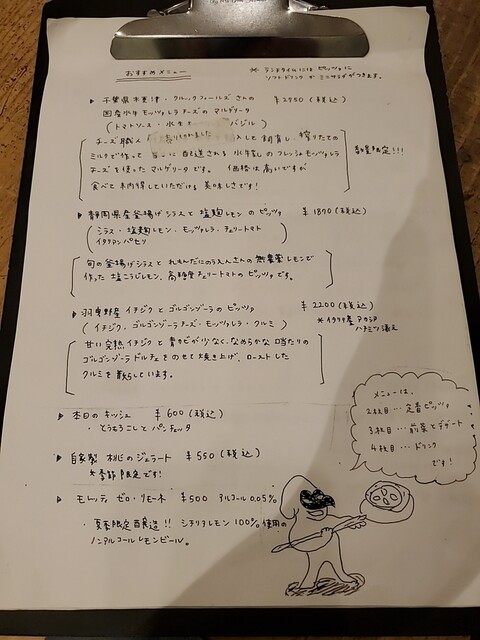 おすすめメニュー
※ ランチタイムには ピッツァに
ソフトドリンク か ミニサラダがつきます。
▶ 千葉県木更津・クルックフィールズさんの ¥2950 (税込)
国産水牛モッツァレラチーズのマルゲリータ
(トマトソース・水牛 バジル)
チーズ職人 売り切れました 入して飼育し 搾りたての
ミルクで作って 毎日に配送される 水牛製のフレッシュモッツァレラ
チーズを使ったマルゲリータです。 価格は高いですが
食べて納得していただける美味しさです!
数量限定!!!
▶ 静岡県産釜揚げシラスと塩麹レモンのピッツァ ¥1870 (税込)
(シラス・塩麹レモン・モッツァレラ・チェリートマト
イタリアンパセリ)
旬の釜揚げシラスと れもんだにのうえんさんの無農薬レモンで
作った塩こうじレモン、高糖度チェリートマトのピッツァです。
▶ 羽曳野産イチジクとゴルゴンゾーラのピッツァ ¥2200 (税込)
(イチジク・ゴルゴンゾーラチーズ・モッツァレラ・クルミ)
※イタリア産アカシア
ハチミツ添え
甘い完熟イチジクと青カビが少なく、なめらかな口当たりの
ゴルゴンゾーラドルチェをのせて焼き上げ、ローストした
クルミを散らしています。
▶ 本日のキッシュ ¥600 (税込)
・とうもろこしとパンチェッタ
▶ 自家製 桃のジェラート ¥550 (税込)
※季節限定です!
▶ モレッティ ゼロ・リモーネ ¥500 アルコール 0.05%
・夏季限定醸造!! シチリアレモン100%使用の
ノンアルコールレモンビール。
メニューは、
2枚目…定番ピッツァ
3枚目…前菜とデザート
4枚目…ドリンク
です!